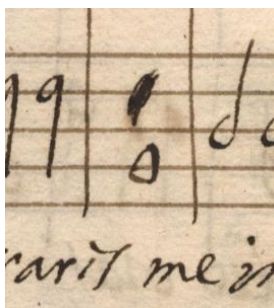 raris me in